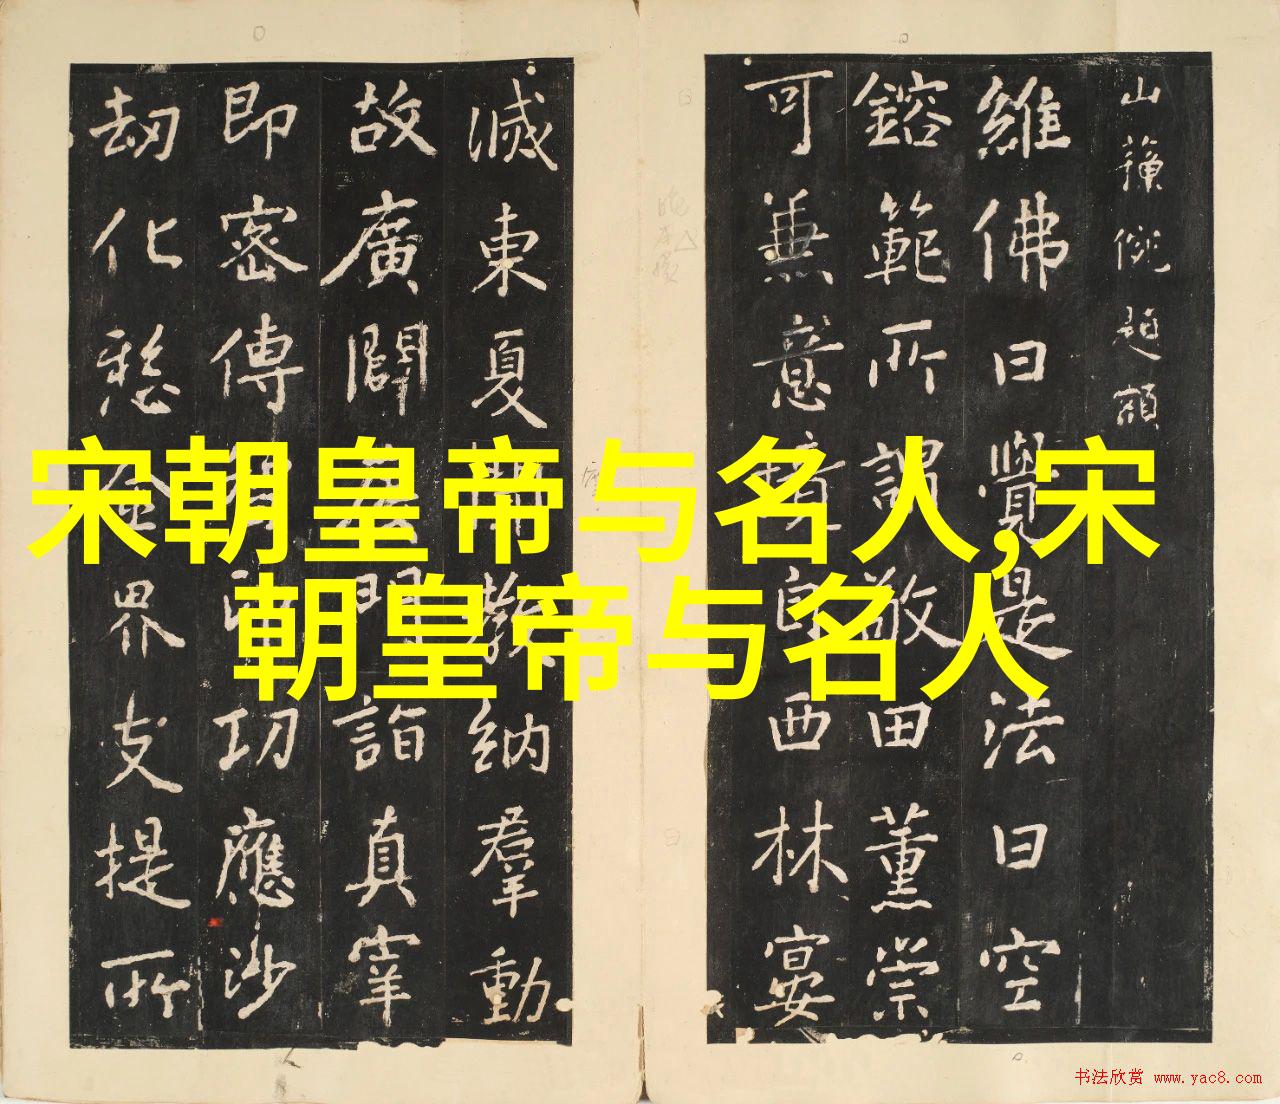 宋朝皇帝与名人,宋
朝皇帝与名人
維佛曰覺是法曰空
鎔範所謂敬田薰崇
可兼意西林宴
滅東夏納羣動
故廣闢門詣真宰
即密傳功應沙
劫化界支提所
书法欣赏 www.yac8.com